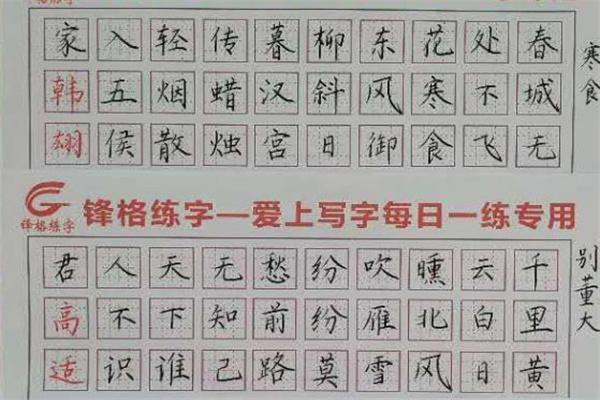 寒食
春城无
处不飞
花寒食
东风御
柳斜日
暮汉宫
传蜡烛
轻烟散
入五侯
家韩翃
锋格练字
锋格练字—爱上写字每日一练专用
别董大
千里黄
云白日
曛北风
吹雁雪
纷纷莫
愁前路
无知己
天下谁
人不识
君高适